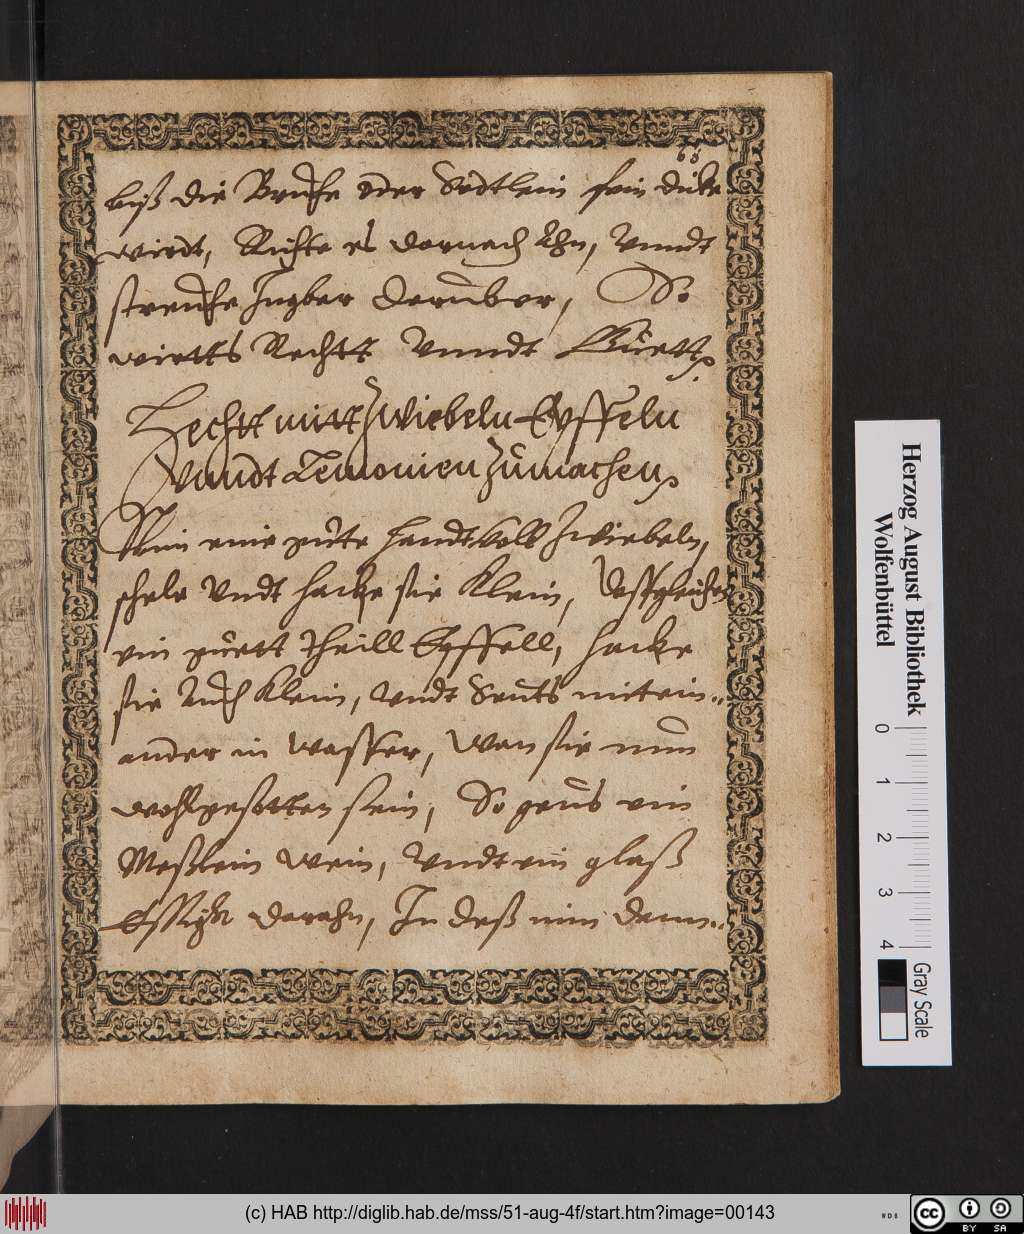 68
biß die Brüehe oder Södtlein fein dicke
wirdt, Richte es darnach Ahn, Vnndt
streuhe Ingber darüber, So
wirtts Rechtt Vnndt Guett.
Hechtt mitt Zwiebeln Epffeln
Vnndt Lemonien Zu machen.
Nim eine gute handtvoll Zwiebeln,
schele Vndt hacke sie Klein, Deßgleichen
ein guett Theill Epffell, hacke
sie Auch Klein, Vndt Seuts mitein„
ander in Wasser, Wan sie nun
wohlgesotten sein, So geus ein
Meßlein Wein, Vndt ein glaß
Essigk darahn, In deß nim dann„
Herzog August Bibliothek
Wolfenbüttel
0 1 2 3 4
Gray Scale
(c) HAB http://diglib.hab.de/mss/51-aug-4f/start.htm?image=00143
WDB
cc BY SA